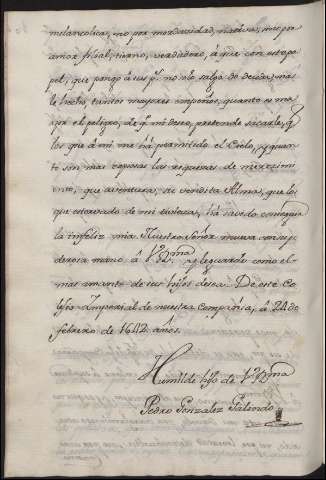 melancolica, no por mordacidad, nociva, mas por
amor filial, tierno, verdadero, à que con este pa
pel, que pongo à sus p.s no solo salgo de deudas, mas
le hecho tantos mayores empeños, quanto es ma
yor el peligro, de q.e mi deseo, pretende sacarle, q.e
los que à mi me hà permitido el Cielo, y quan
to son mas copiosas las riquezas de merecimi
ento, que aventura, su vendita Alma, que los
que esta de mi tivieza, hà sacado conseguir
la infeliz mia. Nuestro Señor mueva con su po
derosa mano à V. P.ma y le guarde como el
mas amante de sus hijos desea. De este Co
legio Imperial de nuestra Compañia, à 24 de
febrero de 1642 años.
Humilde hijo de V. P.ma
Pedro Gonzalez Galindo